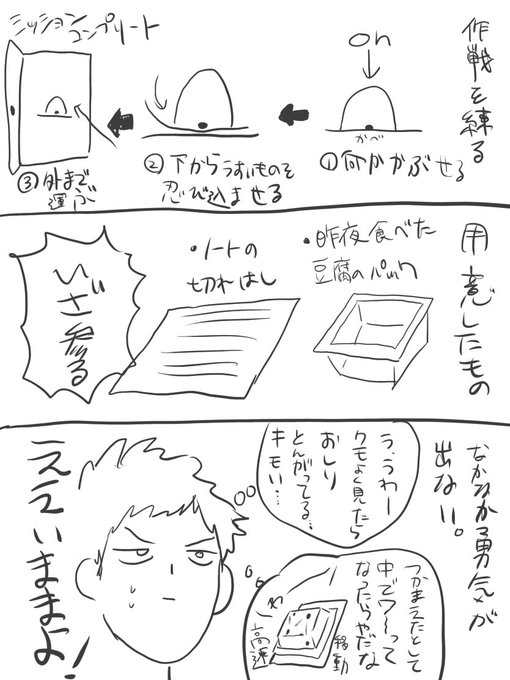 作戦を練る
on
かべ
①何かかぶせる
②下からうすいものを
忍び込ませる
ミッション
コンプリート
③外まで
運ぶ
用意したもの
・昨夜食べた
豆腐のパック
・ノートの
切れはし
いざ参る
なかなか勇気が
出ない。
う、うわー
クモよく見たら
おしり
とんがってる…
キモい…
つかまえたとして
中でワ〜って
なったらやだな
高速
移動
ええいままよ!